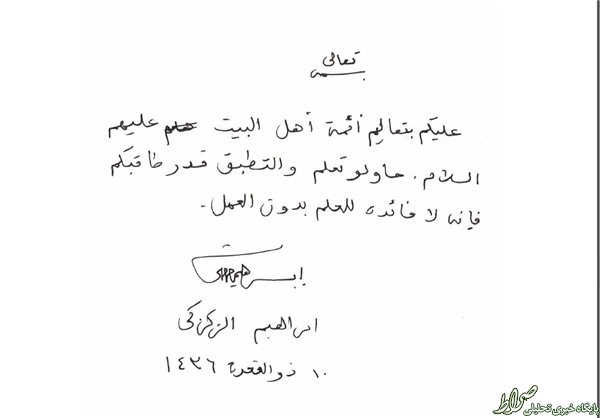 بسمه تعالى
عليكم بتعاليم أئمة أهل البيت عليهم
السلام. حاولو تعلم والتطبق قدر طاقتكم
فإنه لا فائده للعلم بدون العمل.
ابراهيم الزكزكي
١٠ ذوالقعدة ١٤٣٦
صراط
پایگاه خبری تحلیلی